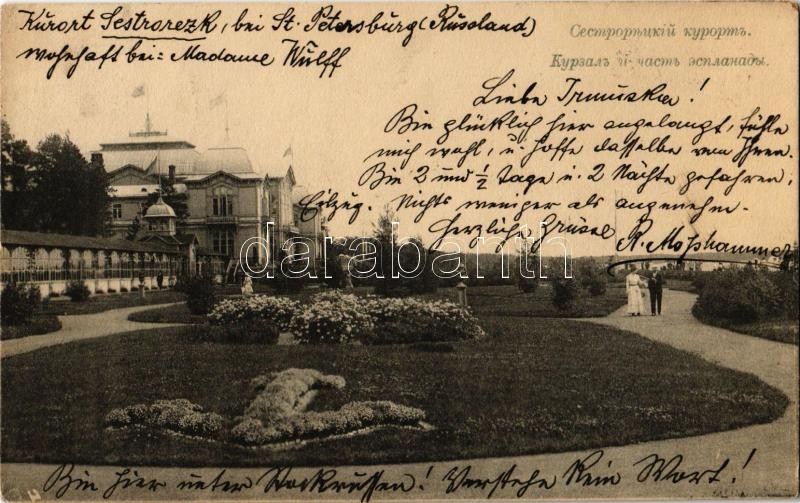 Kurort Sestrorezk, bei St. Petersburg (Russland)
wohnhaft bei: Madame Wulff
Сестрорѣцкій курортъ.
Курзалъ и часть эспланады.
Liebe Irmuska!
Bin glücklich hier angelangt, fühle
mich wohl, u. hoffe dasselbe von Ihnen.
Bin 2 und ½ Tage u. 2 Nächte gefahren,
Eilzug. Nichts weniger als angenehm.
Herzliche Grüsse
R. Moshammer
darabanth
Bin hier unter Stockrussen! Verstehe Kein Wort!